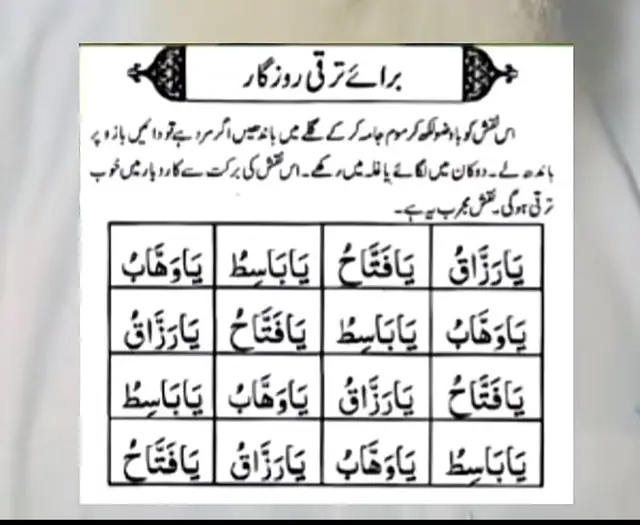 برائے ترقی روزگار
اس نقش کو باوضو لکھ کر موم جامہ کر کے گلے میں باندھیں اگر مرد ہے تو دائیں بازو پر
باندھ لے۔ دوکان میں لگائے یا غلہ میں رکھے۔ اس نقش کی برکت سے کاروبار میں خوب
ترقی ہوگی۔ نقش مجرب یہ ہے۔
یَارَزَّاقُ یَافَتَّاحُ یَابَاسِطُ یَاوَھَّابُ
یَاوَھَّابُ یَابَاسِطُ یَافَتَّاحُ یَارَزَّاقُ
یَافَتَّاحُ یَارَزَّاقُ یَاوَھَّابُ یَابَاسِطُ
یَابَاسِطُ یَاوَھَّابُ یَارَزَّاقُ یَافَتَّاحُ